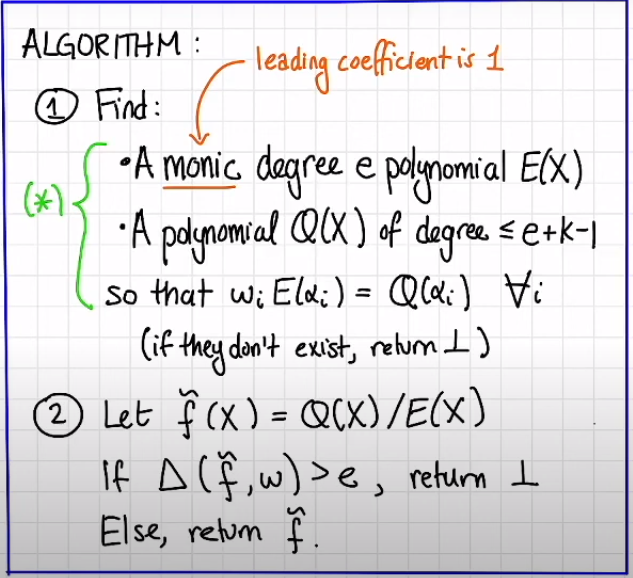 ALGORITHM:
leading coefficient is 1
① Find:
• A monic degree e polynomial E(X)
(*)
• A polynomial Q(X) of degree ≤ e+k-1
so that wᵢ E(αᵢ) = Q(αᵢ) ∀i
(if they don't exist, return ⊥)
② Let f̃(X) = Q(X)/E(X)
If Δ(f̃,w)>e, return ⊥
Else, return f̃.